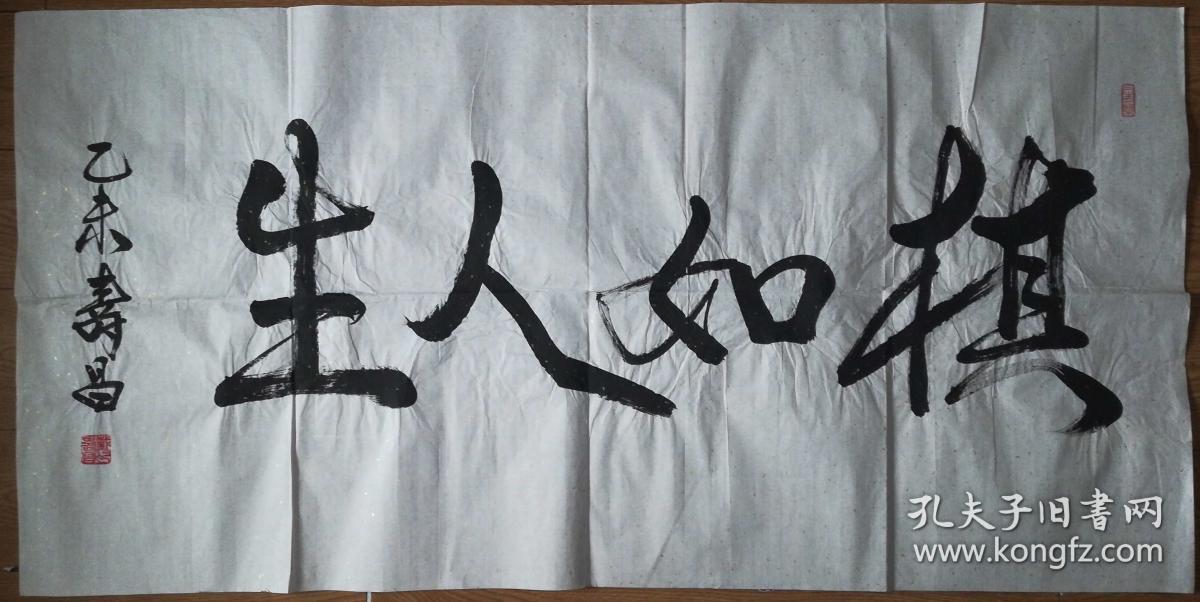 棋如人生
乙未寿昌
孔夫子旧书网
www.kongfz.com